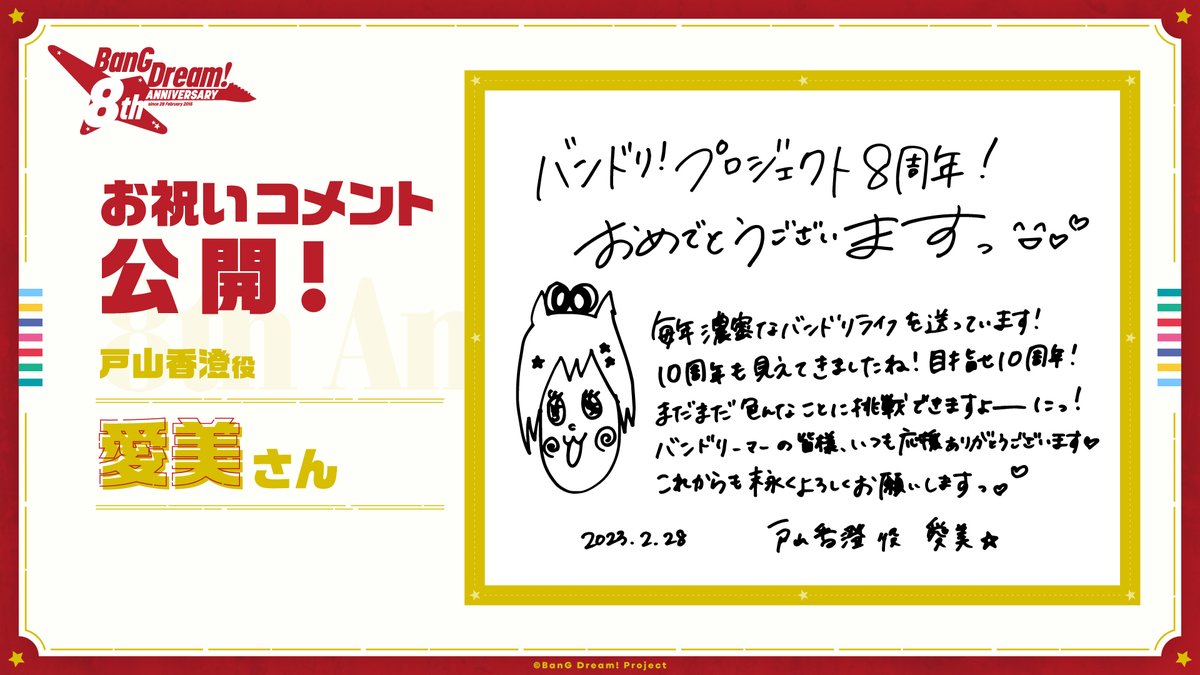 BanG Dream!
8th ANNIVERSARY
since 28 February 2015
お祝いコメント
公開!
戸山香澄役
愛美さん
8th An
バンドリ!プロジェクト8周年!
おめでとうございますっ
毎年濃密なバンドリライフを送っています!
10周年も見えてきましたね!目指せ10周年!
まだまだ色んなことに挑戦できますよーーにっ!
バンドリーマーの皆様、いつも応援ありがとうございます♡
これからも末永くよろしくお願いしますっ♡♡
2023.2.28
戸山香澄役 愛美☆
©BanG Dream! Project